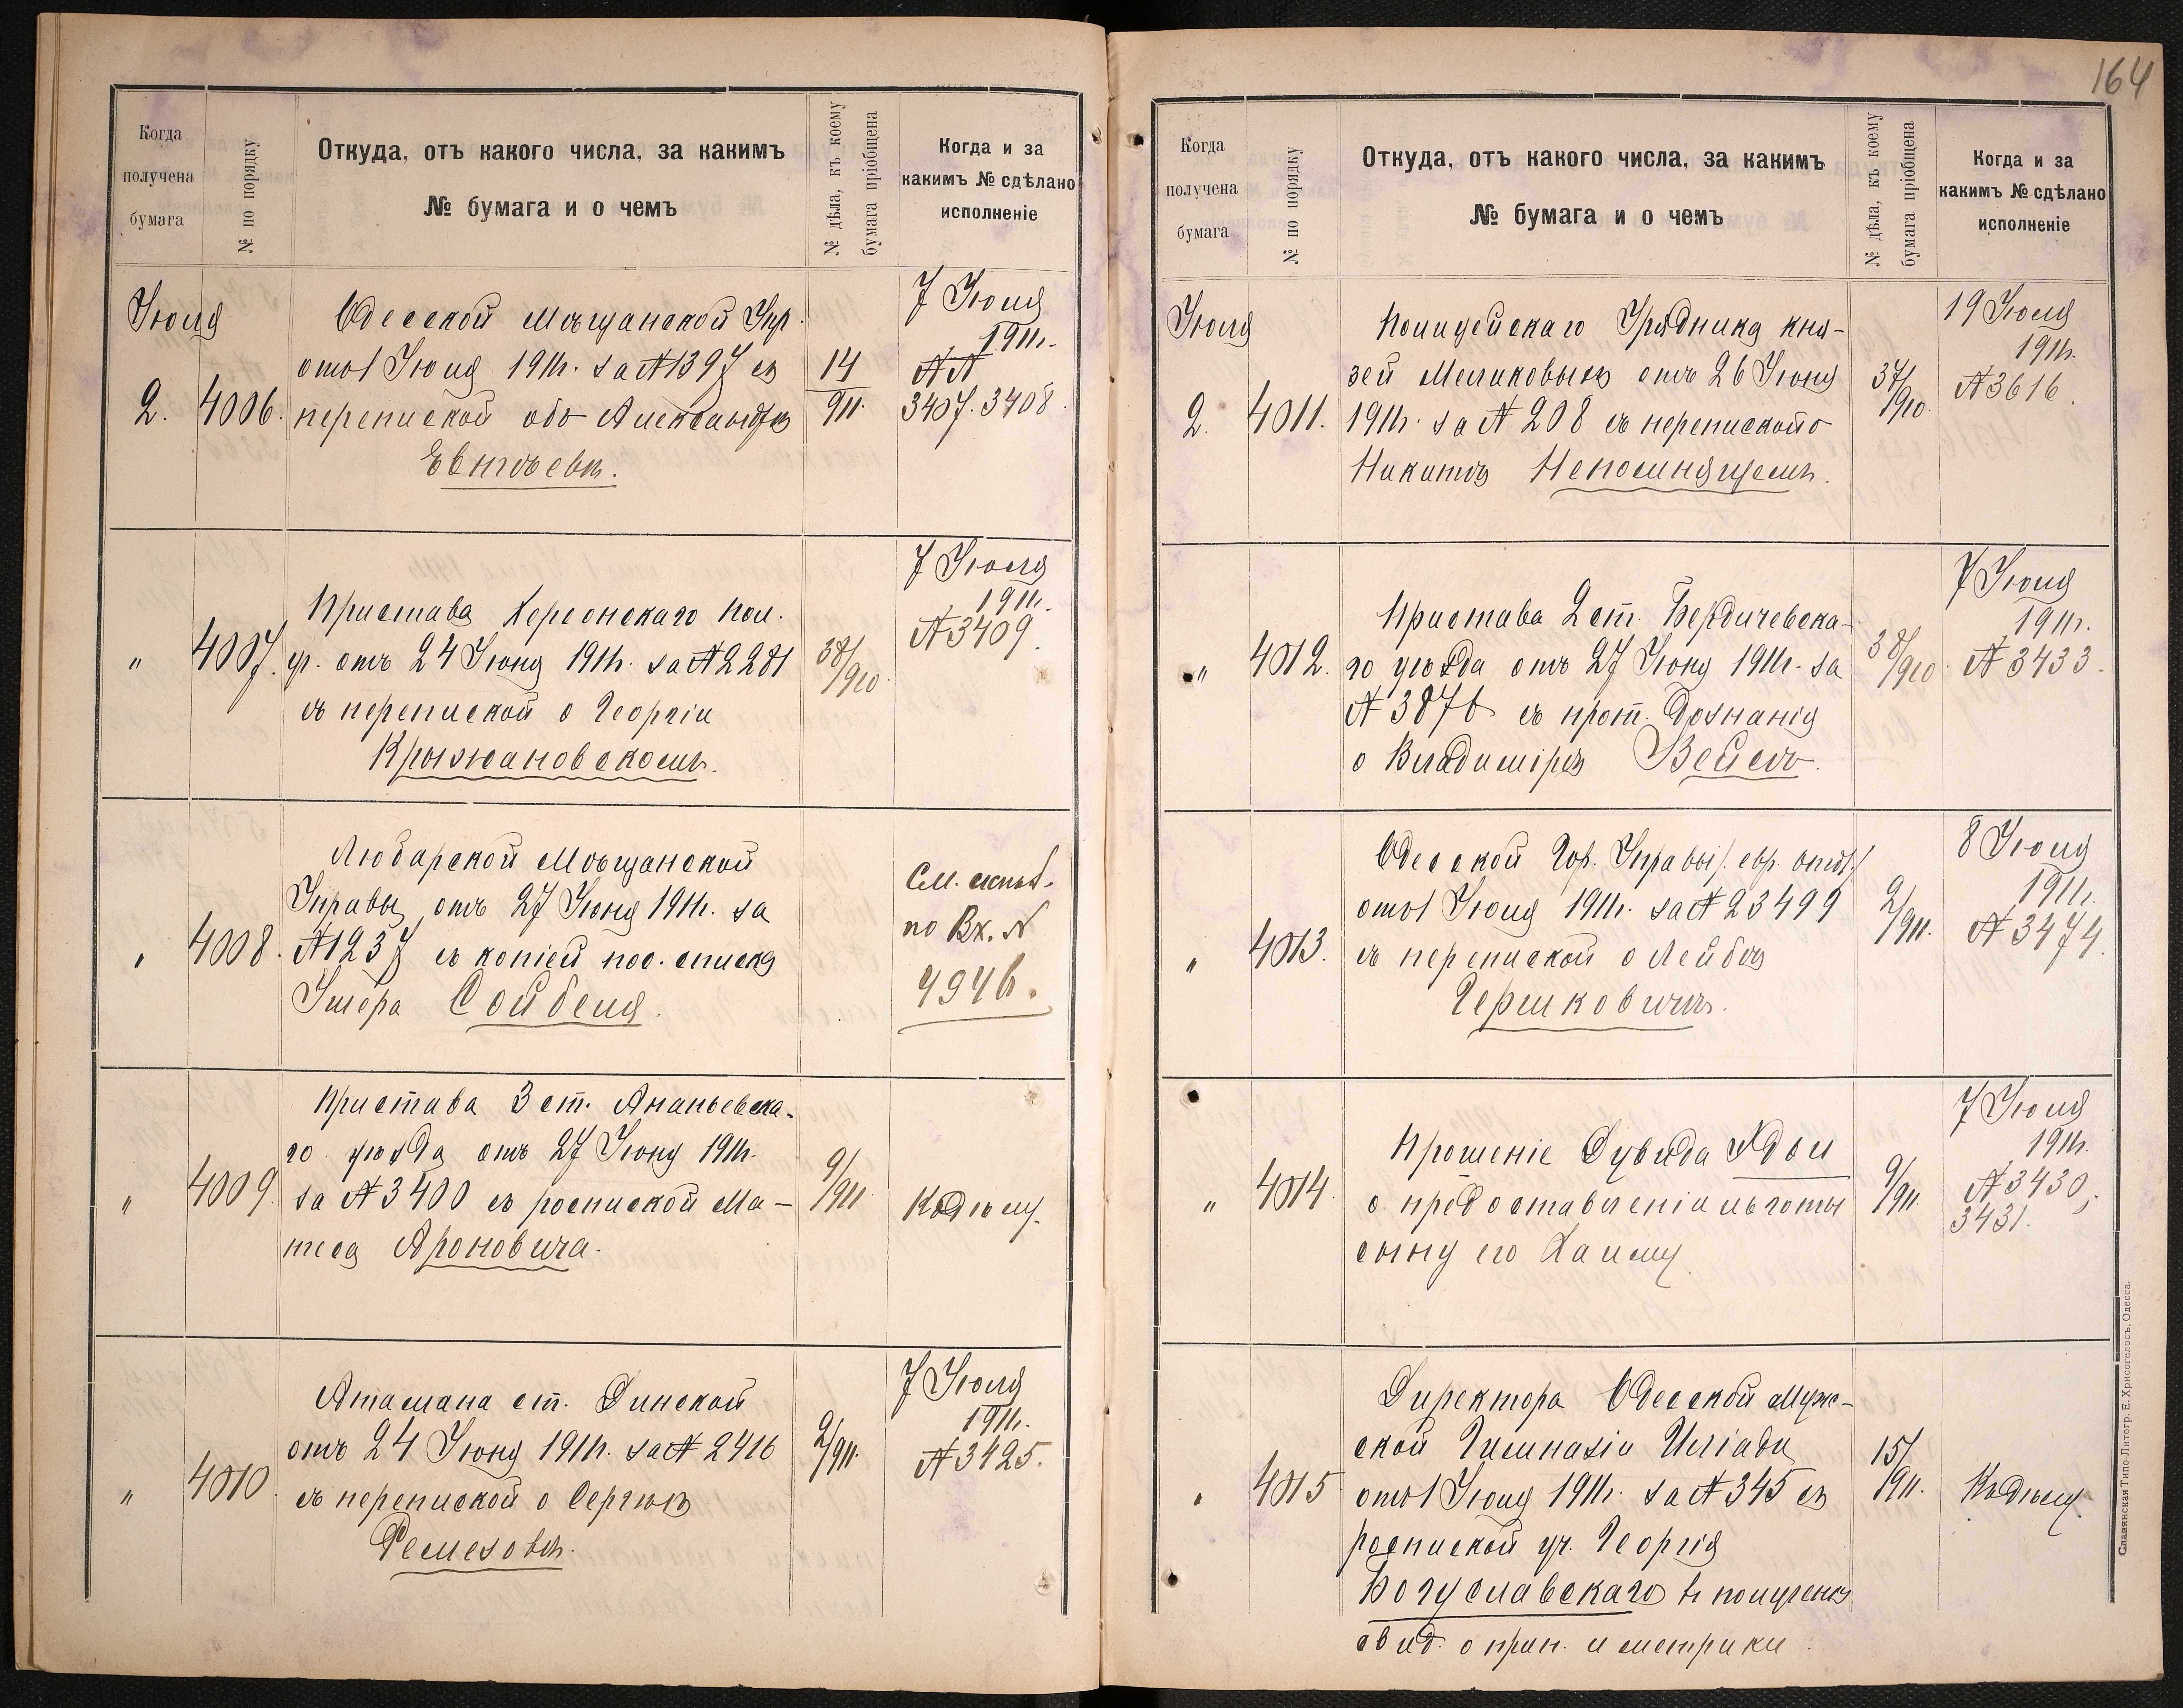 Когда
получена
бумага
№ по порядку
Откуда, отъ какого числа, за какимъ
№ бумага и о чемъ
№ дѣла, къ коему
бумага пріобщена
Когда и за
какимъ № сдѣлано
исполненіе
Іюля
2.
4006.
Одесской Мѣщанской Упр.
отъ 1 Іюля 1911г. за № 1397 съ
перепиской объ Александрѣ
Евтѣевѣ.
14
911.
7 Іюля
1911г.
№№
3407. 3408.
"
4007.
Пристава Херсонскаго пол.
отъ 24 Іюня 1911г. за № 2281
съ перепиской о Георгіи
Крыжановскомъ.
38/910
7 Іюля
1911г.
№ 3409.
"
4008.
Любарской Мѣщанской
Управы отъ 27 Іюня 1911г. за
№ 1237 съ копіей пос. списка
Умера Сойбеля.
См.
по Вх. №
4946.
"
4009.
Пристава 3 ст. Ананьевска-
го уѣзда отъ 27 Іюня 1911г.
за № 3400 съ роспиской Ма-
Ароновича.
9/911
Къ дѣлу.
"
4010.
Атамана ст. Динской
отъ 24 Іюня 1911г. за № 2416
съ перепиской о Сергѣѣ
Ремезовѣ.
2/911.
7 Іюля
1911г.
№ 3425.
164
Когда
получена
бумага
№ по порядку
Откуда, отъ какого числа, за какимъ
№ бумага и о чемъ
№ дѣла, къ коему
бумага пріобщена
Когда и за
какимъ № сдѣлано
исполненіе
Іюля
2.
4011.
Полицейскаго Урядника кня-
зей Меликовыхъ отъ 26 Іюня
1911г. за № 208 съ перепиской о
Никитѣ Непомнящемъ.
37/910.
19 Іюля
1911г.
№ 3616.
"
4012.
Пристава 2 ст. Бердичевска-
го уѣзда отъ 27 Іюня 1911г. за
№ 3876 съ прот. дознанія
о Владимірѣ Вейсъ.
38/910.
7 Іюля
1911г.
№ 3433.
"
4013.
Одесской Гор. Управы /. евр. отд./
отъ 1 Іюля 1911г. за № 23499
съ перепиской о Лейбѣ
Гершковичѣ.
2/911.
8 Іюля
1911г.
№ 3474.
"
4014
Прошеніе Дувида Ядои
о предоставленіи льготы
сыну его Хаиму
9/911.
7 Іюля
1911г.
№ 3430,
3431.
"
4015
Директора Одесской муж-
ской Гимназіи Иліади
отъ 1 Іюля 1911г. за № 345 съ
роспиской уч. Георгія
Богуславскаго въ полученіи
свид. о прип. и метрики.
15/911.
Къ дѣлу
Славянская Типо-Литогр. Е. Хрисогелосъ, Одесса.